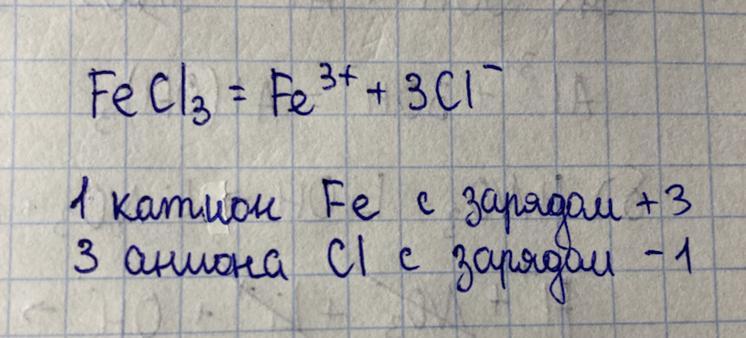 FeCl₃ = Fe³⁺ + 3Cl⁻
1 катион Fe с зарядом +3
3 аниона Cl с зарядом -1